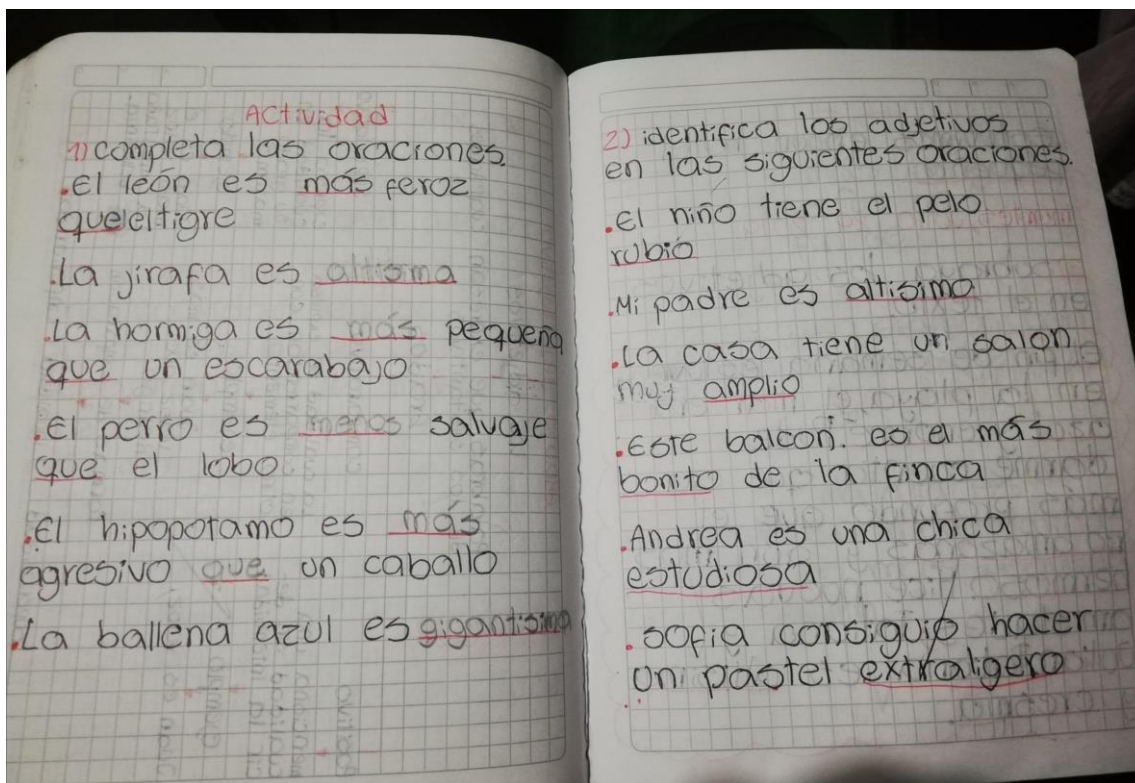 Actividad
1) completa las oraciones.
.El león es más feroz
que el tigre
.La jirafa es altisima
.La hormiga es más pequeña
que un escarabajo
.El perro es menos salvaje
que el lobo
.El hipopotamo es más
agresivo que un caballo
.La ballena azul es gigantisima
2) identifica los adjetivos
en las siguientes oraciones.
.El niño tiene el pelo
rubio
.Mi padre es altisimo
.La casa tiene un salon
muy amplio
.Este balcon. es el más
bonito de la finca
.Andrea es una chica
estudiosa
.Sofia consiguió hacer
un pastel extraligero